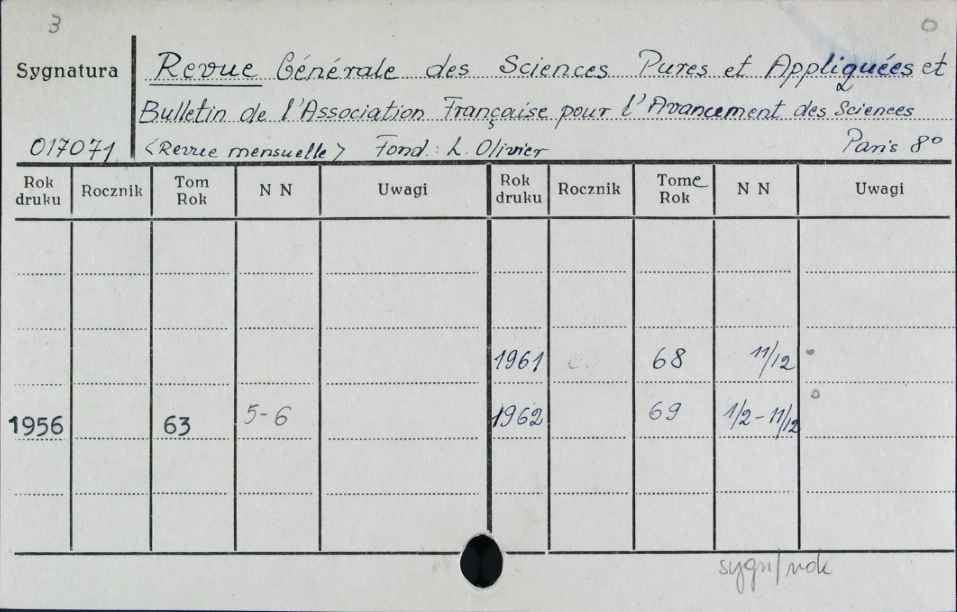 3 0
Sygnatura Revue Générale des Sciences Pures et Appliquées et
Bulletin de l'Association Française pour l'Avancement des Sciences
017071 <Revue mensuelle> Fond: L. Olivier Paris 8°
Rok druku Rocznik Tom Rok N N Uwagi Rok druku Rocznik Tome Rok N N Uwagi
1961 68 11/12
1956 63 5-6 1962 69 1/2-11/12
sygn/rok